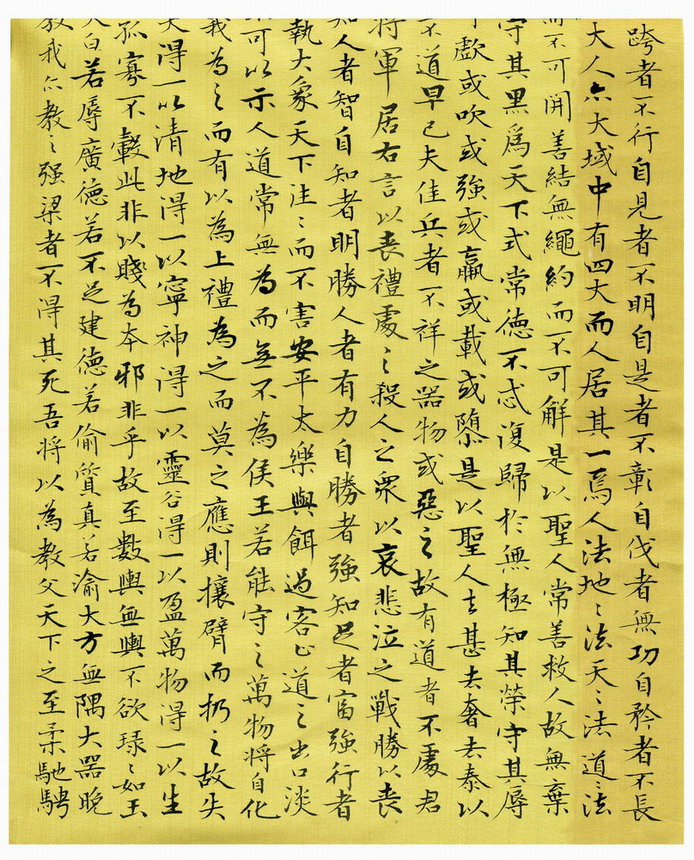 跨者不行自見者不明自是者不彰自伐者無功自矜者不長
大人亦大域中有四大而人居其一焉人法地〻法天〻法道〻法
而不可開善結無繩約而不可解是以聖人常善救人故無棄
守其黑為天下式常德不忒復歸於無極知其榮守其辱
歔或吹或強或羸或載或隳是以聖人去甚去奢去泰以
不道早已夫佳兵者不祥之器物或惡之故有道者不處君
將軍居右言以喪禮處之殺人之眾以哀悲泣之戰勝以喪
知人者智自知者明勝人者有力自勝者強知足者富強行者
執大象天下往〻而不害安平太樂與餌過客止道之出口淡
可以示人道常無為而無不為侯王若能守之萬物將自化
為之而有以為上禮為之而莫之應則攘臂而扔之故失
天得一以清地得一以寧神得一以靈谷得一以盈萬物得一以生
孤寡不轂此非以賤為本邪非乎故至數輿無輿不欲琭〻如玉
大白若辱廣德若不足建德若偷質真若渝大方無隅大器晚
教我亦教之強梁者不得其死吾將以為教父天下之至柔馳騁